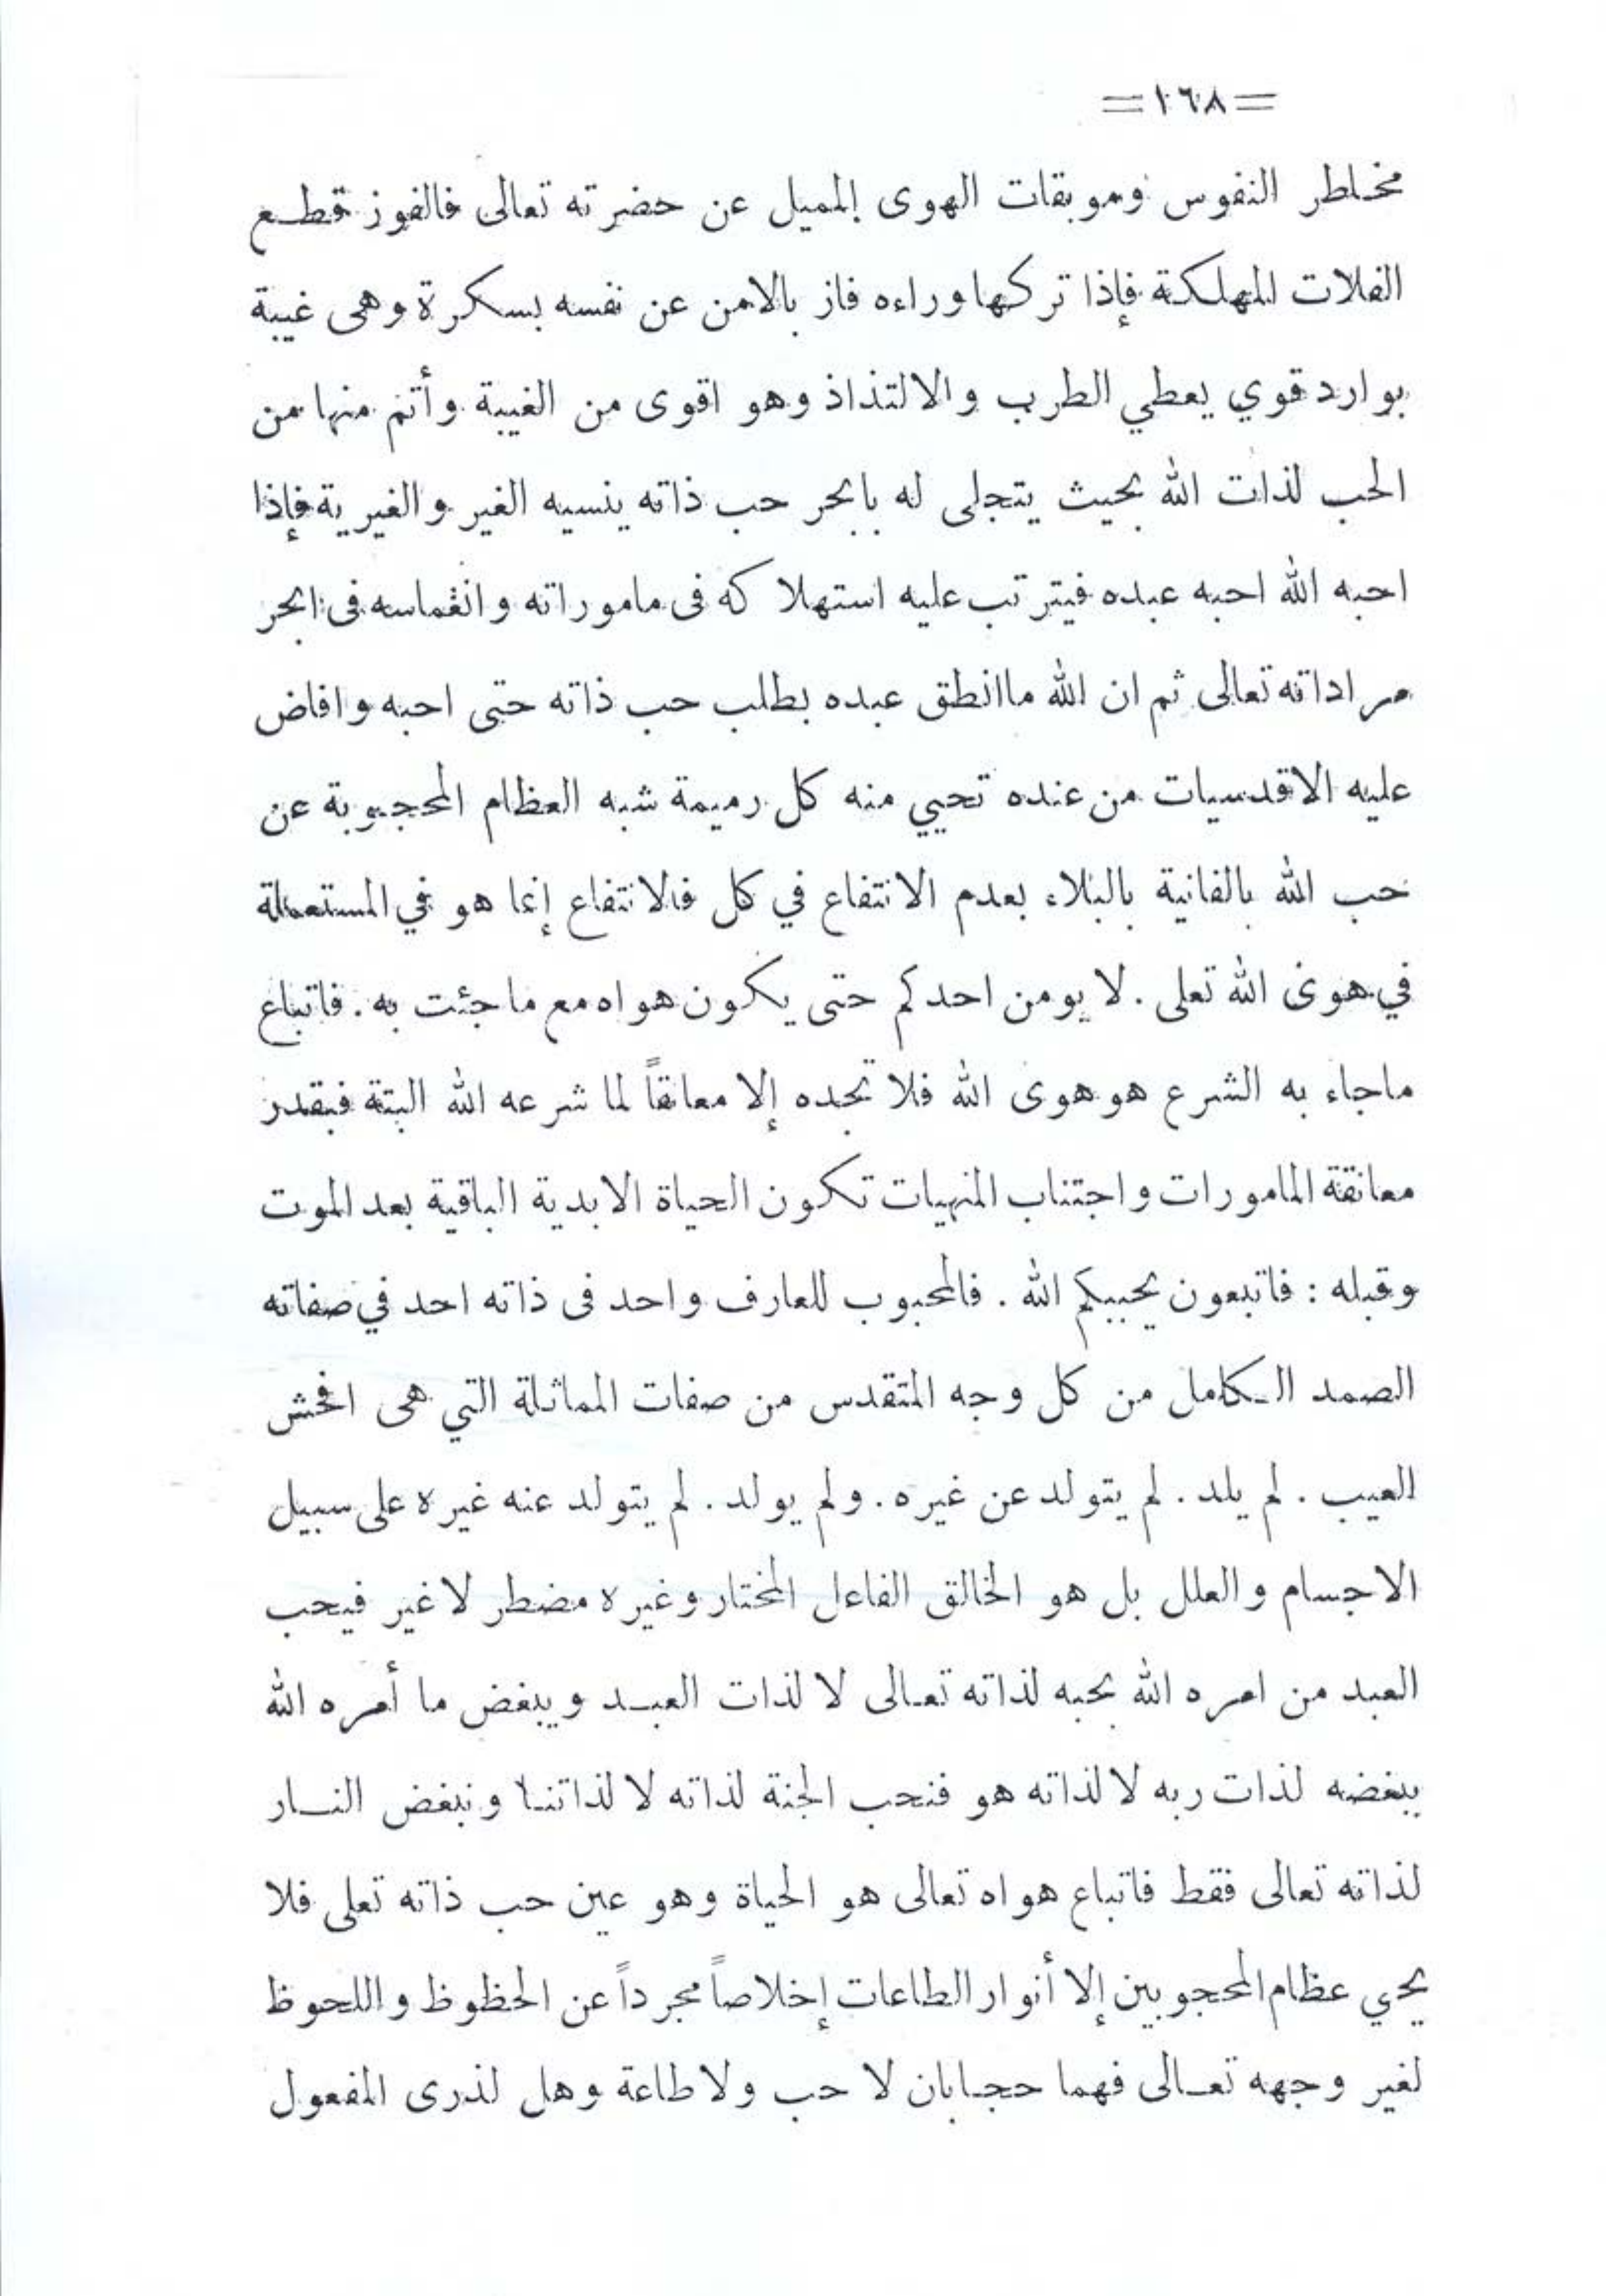 =١٦٨=
مخاطر النفوس وموبقات الهوى المميل عن حضرته تعالى فالفوز قطع
الفلات المهلكة فإذا تركها وراءه فاز بالامن عن نفسه بسكرة وهى غيبة
بوارد قوي يعطي الطرب والالتذاذ وهو اقوى من الغيبة وأتم منها من
الحب لذات الله بحيث يتجلى له بابحر حب ذاته ينسيه الغير والغيرية فإذا
احبه الله احبه عبده فيترتب عليه استهلاكه فى ماموراته وانغماسه فى ابحر
مراداته تعالى ثم ان الله ماانطق عبده بطلب حب ذاته حتى احبه وافاض
عليه الاقدسيات من عنده تحيي منه كل رميمة شبه العظام المحجوبة عن
حب الله بالفانية بالبلاء بعدم الانتفاع في كل فالانتفاع إنما هو في المستعملة
في هوى الله تعلى . لا يومن احدكم حتى يكون هواه مع ما جئت به . فاتباع
ماجاء به الشرع هو هوى الله فلا تجده إلا معانقاً لما شرعه الله البتة فبقدر
معانقة المامورات واجتناب المنهيات تكون الحياة الابدية الباقية بعد الموت
وقبله : فاتبعون يحببكم الله . فالمحبوب للعارف واحد فى ذاته احد في صفاته
الصمد الكامل من كل وجه المتقدس من صفات المماثلة التي هى افحش
العيب . لم يلد . لم يتولد عن غيره . ولم يولد . لم يتولد عنه غيره على سبيل
الاجسام والعلل بل هو الخالق الفاعل المختار وغيره مضطر لا غير فيحب
العبد من امره الله بحبه لذاته تعالى لا لذات العبد ويبغض ما أمره الله
ببغضه لذات ربه لا لذاته هو فنحب الجنة لذاته لا لذاتنا ونبغض النار
لذاته تعالى فقط فاتباع هواه تعالى هو الحياة وهو عين حب ذاته تعلى فلا
يحي عظام المحجوبين إلا أنوار الطاعات إخلاصاً مجرداً عن الحظوظ واللحوظ
لغير وجهه تعالى فهما حجابان لا حب ولا طاعة وهل لذرى المفعول